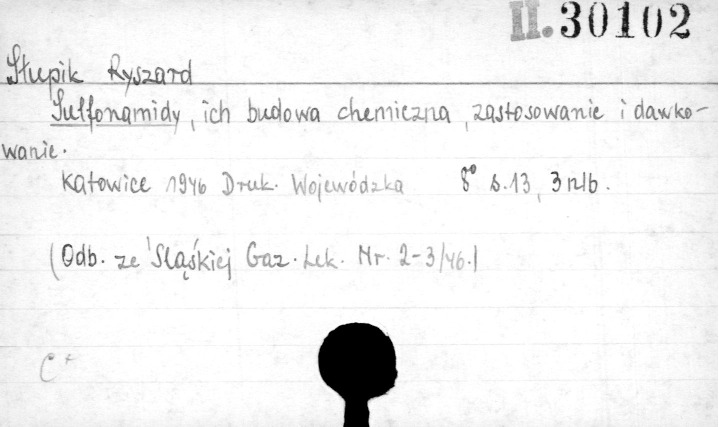 II. 30102
Słupik Ryszard
Sulfonamidy, ich budowa chemiczna, zastosowanie i dawko-
wanie.
Katowice 1946 Druk. Wojewódzka 8° s. 13, 3 nlb.
(Odb. ze Śląskiej Gaz. Lek. Nr. 2-3/46.)
C+